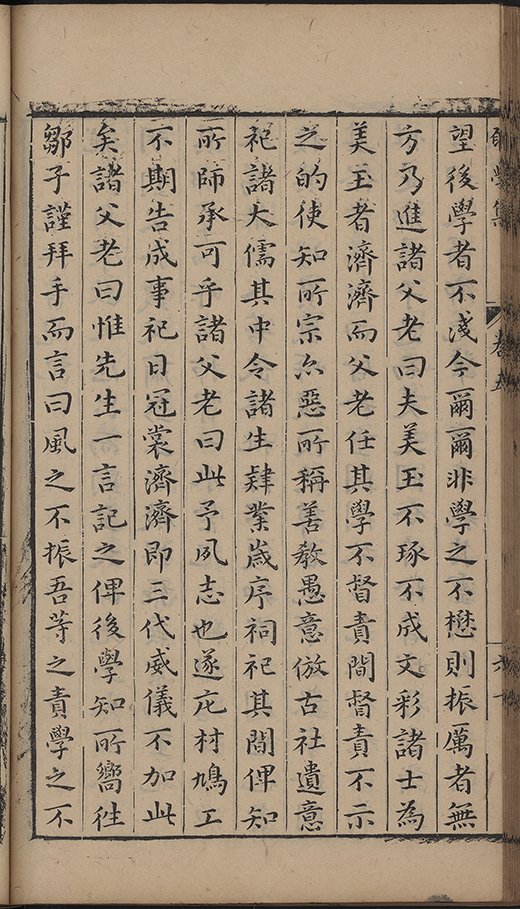 望後學者不淺今爾爾非學之不懋則振厲者無
方乃進諸父老曰夫美玉不琢不成文彩諸士為
美玉者濟濟而父老任其學不督責間督責不示
之的使知所宗尒惡所稱善教愚意倣古社遺意
祀諸大儒其中令諸生肄業歲序祠祀其間俾知
所師承可乎諸父老曰此予夙志也遂庀材鳩工
不期告成事祀日冠裳濟濟即三代威儀不加此
矣諸父老曰惟先生一言記之俾後學知所嚮徃
鄒子謹拜手而言曰風之不振吾等之責學之不